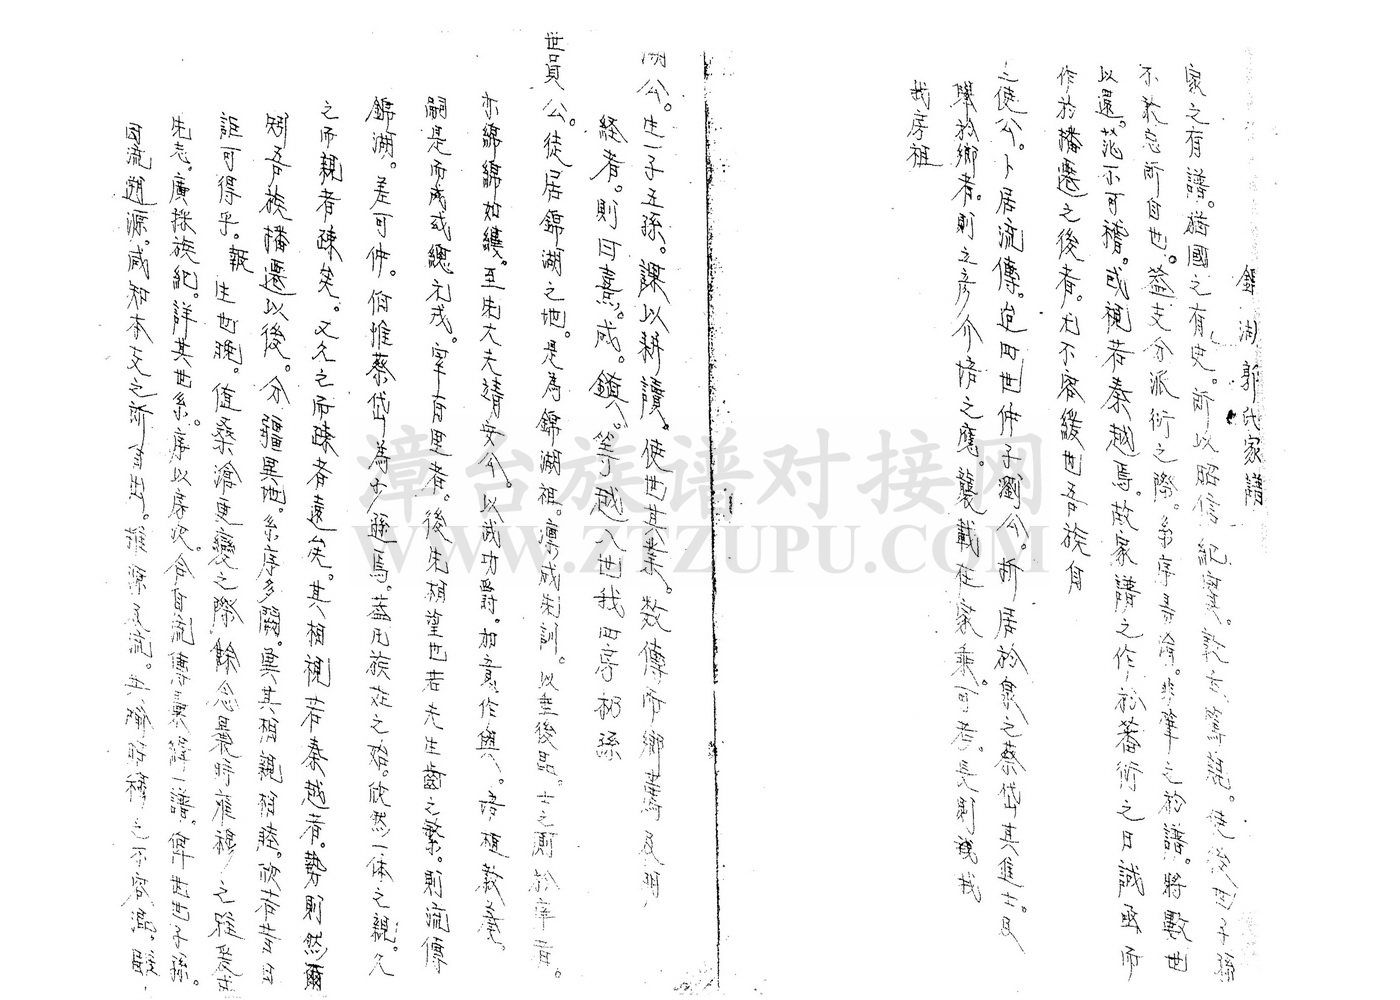 錦湖郭氏家譜
家之有譜。猶國之有史。所以昭信紀實。敦古篤親。使後之子孫
不敢忘所自也。蓋支分派衍之際。系序易淆。非筆之於譜。將數世
以還。茫不可稽。或視若秦越焉。故家譜之作於蕃衍之日誠亟而
作於播遷之後者。尤不容緩也吾族自
之使公。卜居流傳。迨四世仲子劉公。析居於泉之蔡岱其進士。及
舉於鄉者。則之彥介悟之鷹。襲載在家乘。可考。長則淺我
我房祖
湖公。生一子五孫。課以耕讀。使世其業。数傳而鄉薦及明
経者。則曰熹。成。鎮。等越八世我四房初孫
世員公。徒居錦湖之地。是為錦湖祖。凛成先訓。以垂後昆。士之厠於庠者。
亦綿綿如縷。至先大夫靖安公。以武功爵。加意作興。培植教養。
嗣是而成或總元戎。宰百里者。後先相望也若夫生齒之繁。則流傳
錦湖。差可仲。伯惟蔡岱為多孫焉。蓋氏族在之始。欣然一体之親。久
之而親者疎矣。又久之而疎者遠矣。其相視若秦越者。勢則然爾
矧吾族播遷以後。分疆異地。系序多闕。冀其相親相睦。欣若昔日
詎可得乎。報生也晚。值桑滄更變之際。餘念曩時雍穆之雅爰承
先志。廣採族紀。詳其世系。序以房次。合自流傳彙綜一譜。俾世世子孫。
因流遡源。咸知本支之所自出。推源及流。共喻昭穆之不容混。
WWW.ZTZUPU.COM
漳台族谱对接网